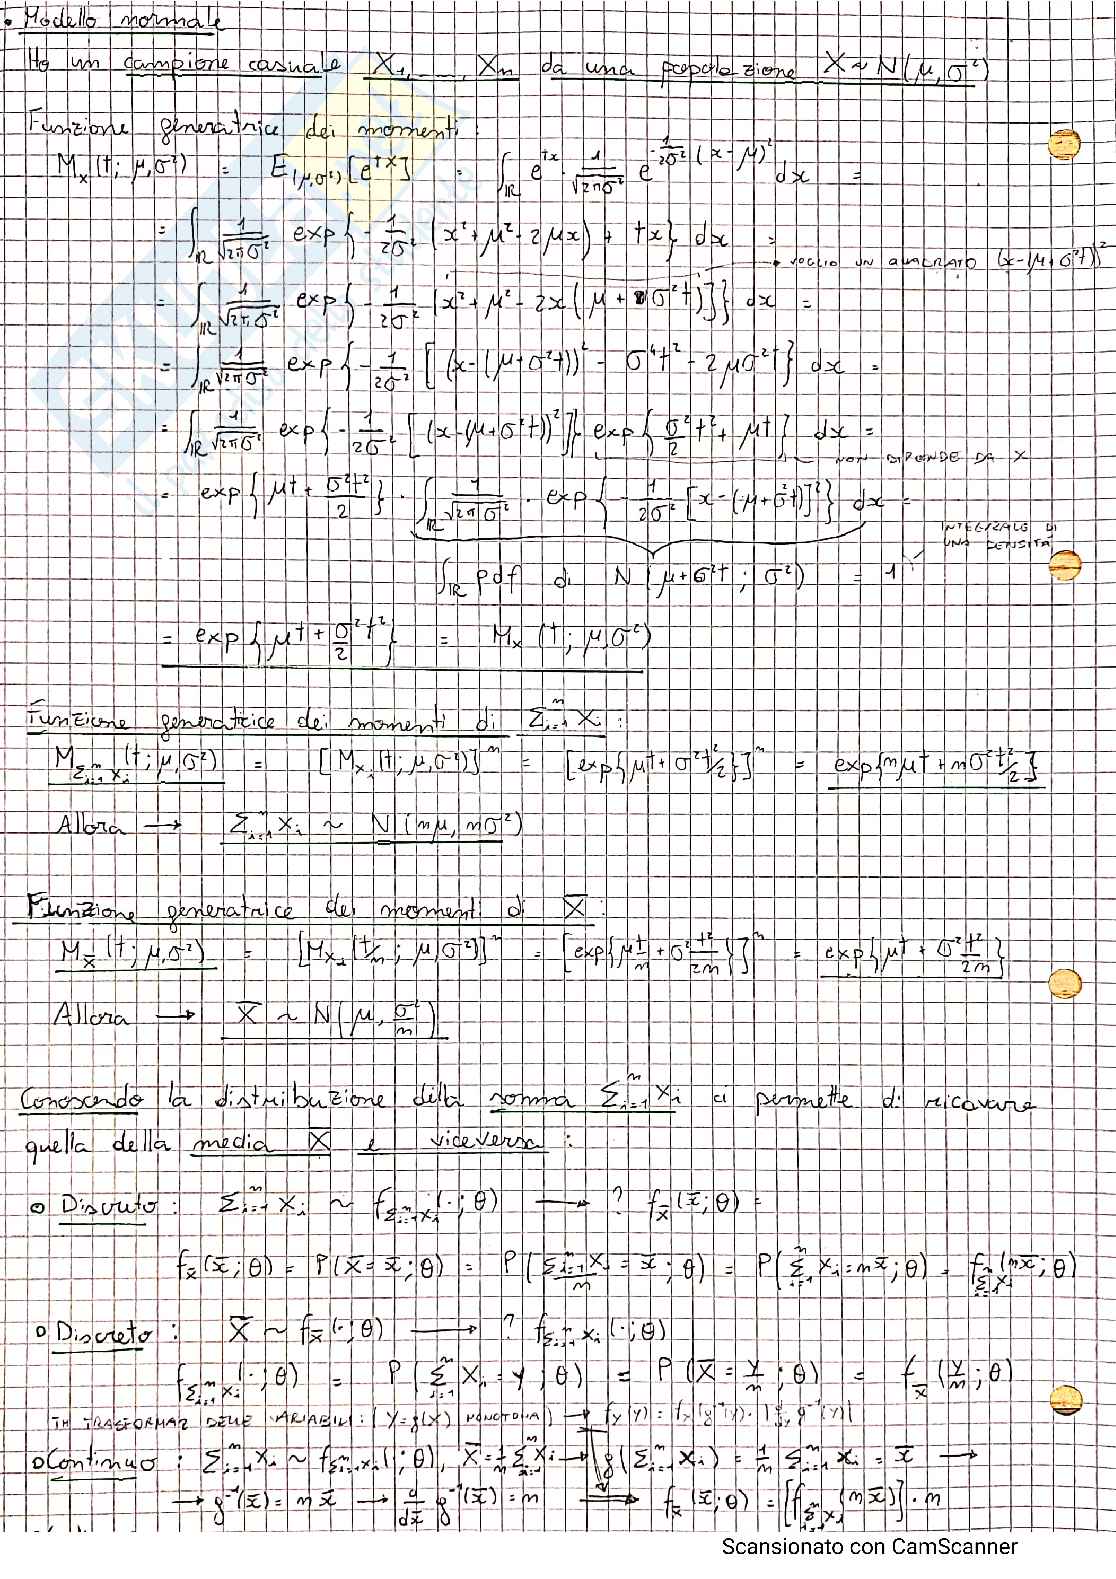 • Modello normale
Ho un campione casuale X₁, ..., Xₙ da una popolazione X ~ N(μ, σ²)
Funzione generatrice dei momenti:
Mₓ(t; μ, σ²) = E₍μ,σ²₎[e^{tX}] = ∫_ℝ e^{tx} · 1/√(2πσ²) e^{-1/(2σ²) (x-μ)²} dx =
= ∫_ℝ 1/√(2πσ²) exp{-1/(2σ²) (x² + μ² - 2μx) + tx} dx =
→ VOGLIO UN QUADRATO (x-(μ+σ²t))²
= ∫_ℝ 1/√(2πσ²) exp{-1/(2σ²) [x² + μ² - 2x(μ + σ²t)]} dx =
= ∫_ℝ 1/√(2πσ²) exp{-1/(2σ²) [(x-(μ+σ²t))² - σ⁴t² - 2μσ²t]} dx =
= ∫_ℝ 1/√(2πσ²) exp{-1/(2σ²) [(x-(μ+σ²t))²]} exp{σ²/2 t² + μt} dx =
NON DIPENDE DA X
= exp{μt + σ²t²/2} · ∫_ℝ 1/√(2πσ²) · exp{-1/(2σ²) [x-(μ+σ²t)]²} dx =
INTEGRALE DI
UNA DENSITÀ
∫_ℝ pdf di N(μ+σ²t; σ²) = 1
= exp{μt + σ²/2 t²} = Mₓ(t; μ, σ²)
Funzione generatrice dei momenti di Σᵢ₌₁ⁿ Xᵢ:
M_{Σᵢ₌₁ⁿ Xᵢ}(t; μ, σ²) = [M_{Xᵢ}(t; μ, σ²)]ⁿ = [exp{μt + σ²t²/2}]ⁿ = exp{nμt + nσ²t²/2}
Allora → Σᵢ₌₁ⁿ Xᵢ ~ N(nμ, nσ²)
Funzione generatrice dei momenti di X̄:
M_X̄(t; μ, σ²) = [M_{Xᵢ}(t/n; μ, σ²)]ⁿ = [exp{μ t/n + σ² t²/2n}]ⁿ = exp{μt + σ² t²/2n}
Allora → X̄ ~ N(μ, σ²/n)
Conoscendo la distribuzione della somma Σᵢ₌₁ⁿ Xᵢ ci permette di ricavare
quella della media X̄ e viceversa:
• Discreto: Σᵢ₌₁ⁿ Xᵢ ~ f_{Σᵢ₌₁ⁿ Xᵢ}(·; θ) → ? f_X̄(x̄; θ) =
f_X̄(x̄; θ) = P(X̄ = x̄; θ) = P(Σᵢ₌₁ⁿ Xᵢ/n = x̄; θ) = P(Σᵢ₌₁ⁿ Xᵢ = nx̄; θ) = f_{Σᵢ₌₁ⁿ Xᵢ}(nx̄; θ)
• Discreto: X̄ ~ f_X̄(·; θ) → ? f_{Σᵢ₌₁ⁿ Xᵢ}(·; θ)
f_{Σᵢ₌₁ⁿ Xᵢ}(·; θ) = P(Σᵢ₌₁ⁿ Xᵢ = y; θ) = P(X̄ = y/n; θ) = f_X̄(y/n; θ)
TH TRASFORMAZ DELLE VARIABILI: (Y=g(X) MONOTONA) → f_Y(y) = f_X(g⁻¹(y)) · |d/dy g⁻¹(y)|
• Continuo: Σᵢ₌₁ⁿ Xᵢ ~ f_{Σᵢ₌₁ⁿ Xᵢ}(·; θ), X̄ = 1/n Σᵢ₌₁ⁿ Xᵢ → g(Σᵢ₌₁ⁿ Xᵢ) = 1/n Σᵢ₌₁ⁿ Xᵢ = x̄ →
→ g⁻¹(x̄) = nx̄ → d/dx̄ g⁻¹(x̄) = n ⇒ f_X̄(x̄; θ) = [f_{Σᵢ₌₁ⁿ Xᵢ}(nx̄)] · n
Scansionato con CamScanner